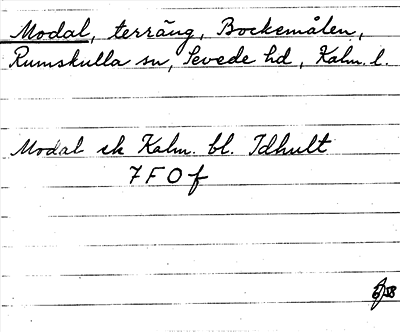 Modal, terräng, Bockemålen,
Rumskulla sn, Sevede hd, Kalm. l.
Modal ek Kalm. bl. Idhult
7 F 0 f